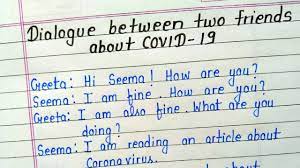 Dialogue between two friends
about COVID-19
Geeta: Hi Seema! How are you?
Seema: I am fine. How are you?
Geeta: I am also fine. What are you
doing?
Seema: I am reading an article about
Coronavirus.